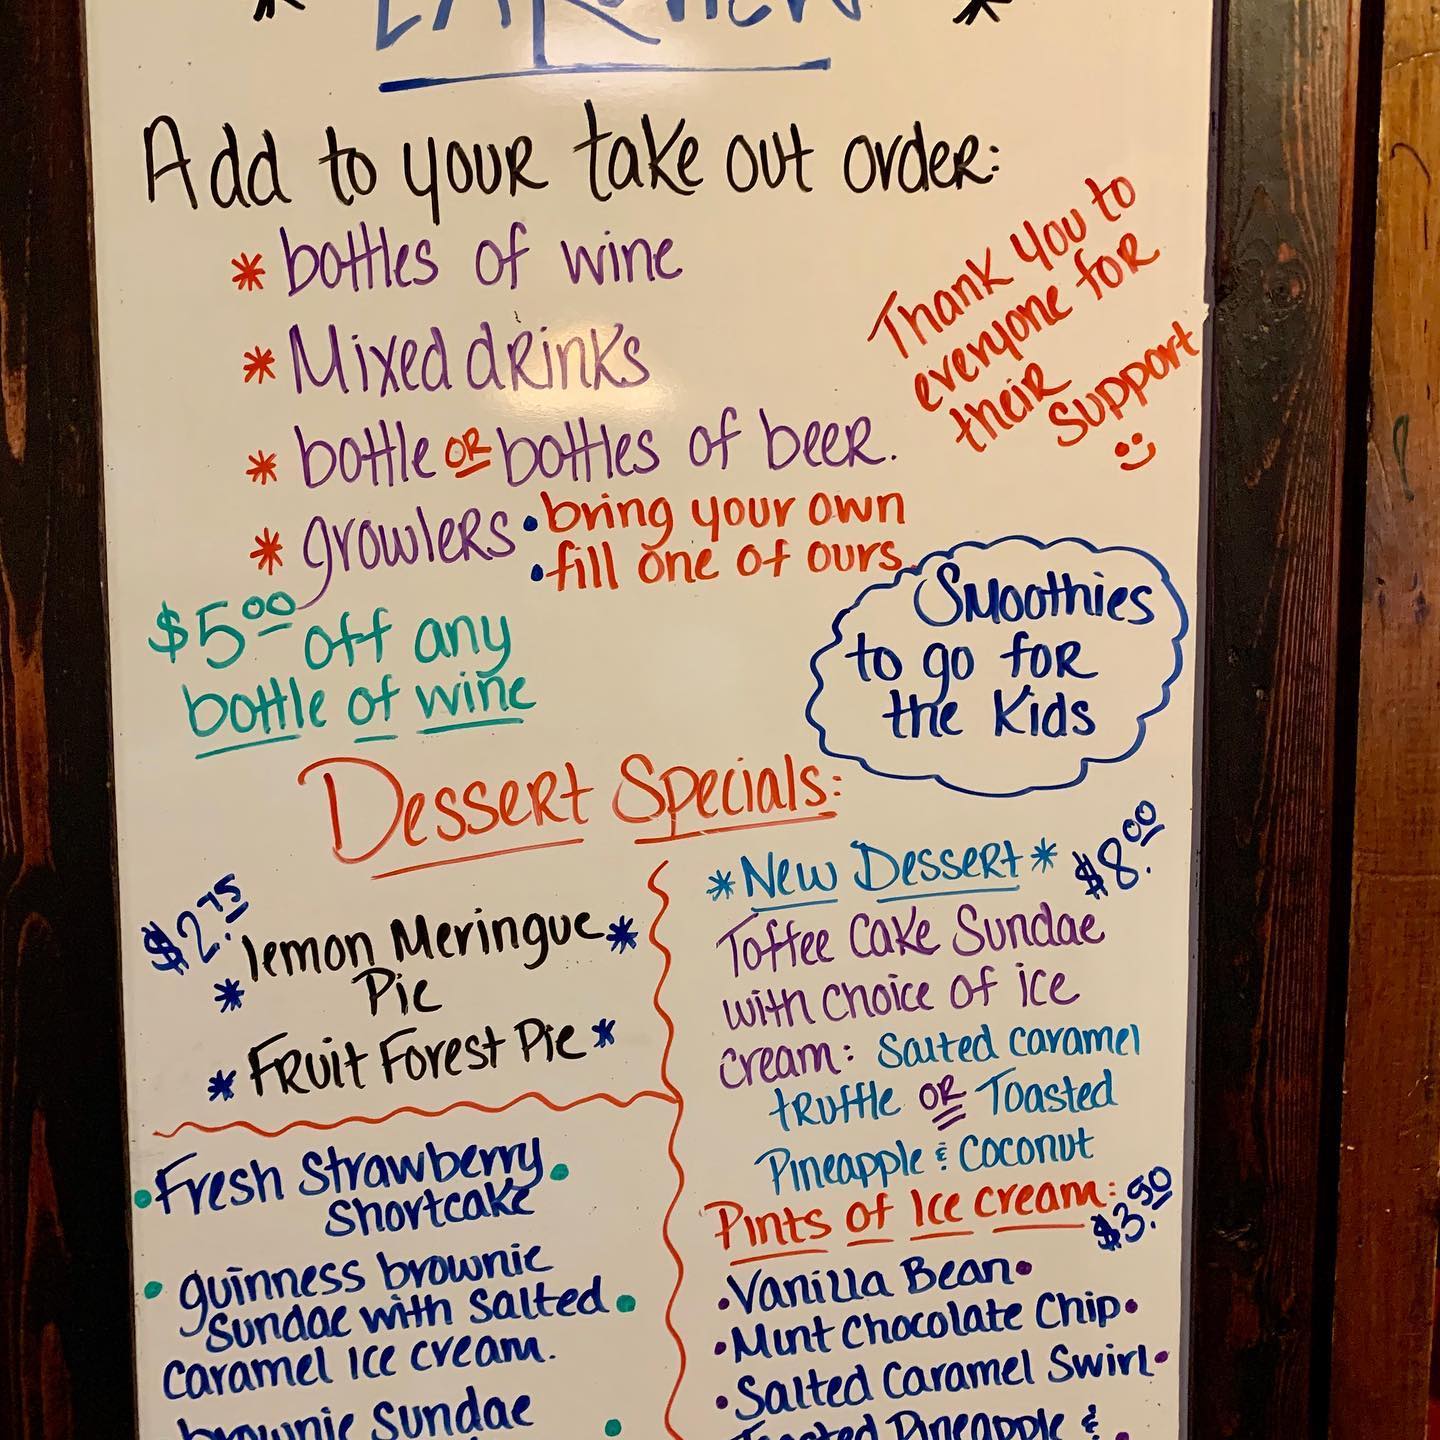 Add to your take out order:
* bottles of wine
* Mixed drinks
* bottle OR bottles of beer.
* growlers • bring your own
• fill one of ours.
Thank you to
everyone for
their
support
$5.00 off any
bottle of wine
Smoothies
to go for
the Kids
Dessert Specials:
$2.75
* lemon Meringue *
Pie
* Fruit Forest Pie *
• Fresh Strawberry •
Shortcake
• guinness brownie
Sundae with Salted •
caramel Ice cream.
brownie Sundae
* New Dessert * $8.00
Toffee Cake Sundae
with choice of ice
cream: Salted caramel
truffle OR Toasted
Pineapple & Coconut
Pints of Ice cream: $3.50
• Vanilla Bean •
• Mint Chocolate Chip •
• Salted Caramel Swirl •
Toasted Pineapple &